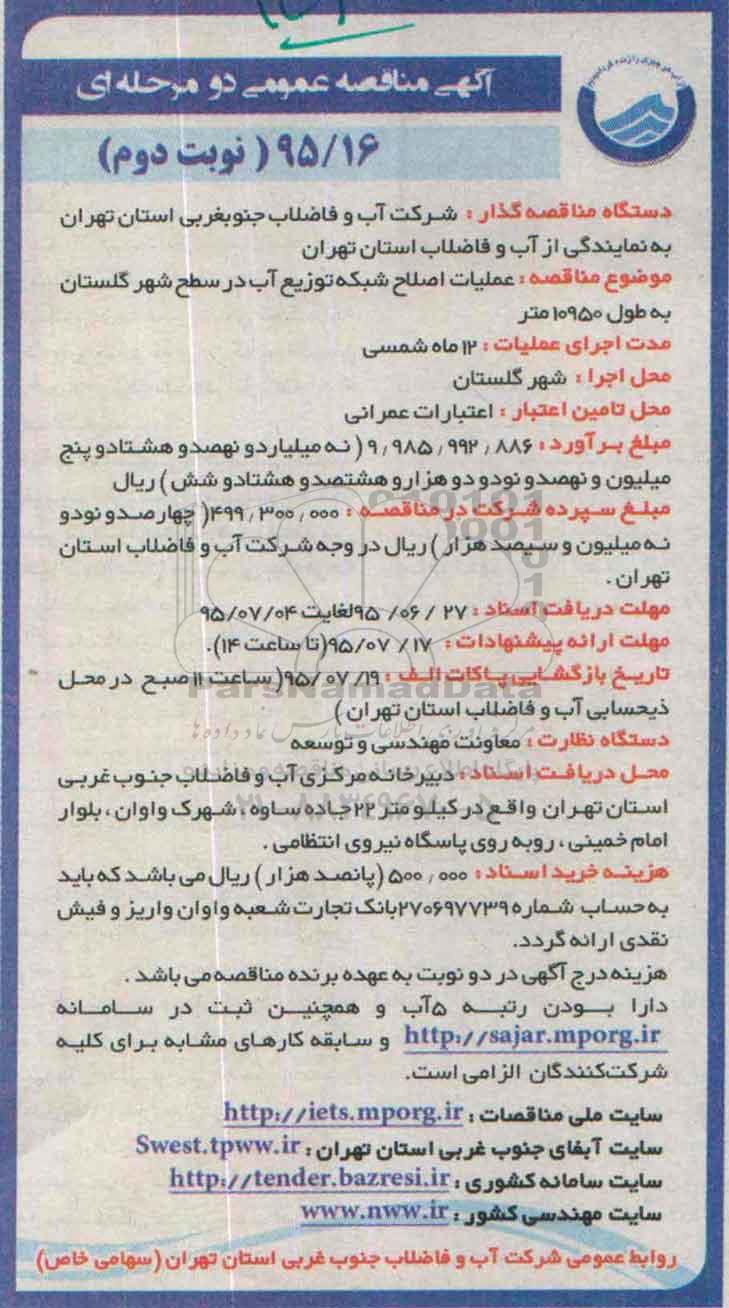 آگهی مناقصه عمومی دو مرحله ای
۹۵/۱۶ ( نوبت دوم)
دستگاه مناقصه گذار : شرکت آب و فاضلاب جنوبغربی استان تهران
به نمایندگی از آب و فاضلاب استان تهران
موضوع مناقصه : عملیات اصلاح شبکه توزیع آب در سطح شهر گلستان
به طول ۱۰۹۵۰ متر
مدت اجرای عملیات : ۱۲ ماه شمسی
محل اجرا : شهر گلستان
محل تامین اعتبار : اعتبارات عمرانی
مبلغ برآورد : ۹٫۹۸۵٫۹۹۲٫۸۸۶ ( نه میلیاردو نهصدو هشتادو پنج
میلیون و نهصدو نودو دو هزارو هشتصدو هشتادو شش ) ریال
مبلغ سپرده شرکت در مناقصه : ۴۹۹٫۳۰۰٫۰۰۰( چهارصدو نودو
نه میلیون و سیصد هزار ) ریال در وجه شرکت آب و فاضلاب استان
تهران .
مهلت دریافت اسناد : ۲۷ / ۰۶ /۹۵ لغایت ۹۵/۰۷/۰۴
مهلت ارائه پیشنهادات : ۱۷ / ۹۵/۰۷(تا ساعت ۱۴).
تاریخ بازگشایی پاکات الف : ۹۵/۰۷/۱۹( ساعت ۱۱ صبح در محل
ذیحسابی آب و فاضلاب استان تهران )
دستگاه نظارت : معاونت مهندسی و توسعه
محل دریافت اسناد : دبیرخانه مرکزی آب و فاضلاب جنوب غربی
استان تهران واقع در کیلو متر ۲۲ جاده ساوه ، شهرک واوان ، بلوار
امام خمینی ، روبه روی پاسگاه نیروی انتظامی .
هزینه خرید اسناد : ۵۰۰٫۰۰۰ (پانصد هزار ) ریال می باشد که باید
به حساب شماره ۲۷۰۶۹۷۷۳۹ بانک تجارت شعبه واوان واریز و فیش
نقدی ارائه گردد.
هزینه درج آگهی در دو نوبت به عهده برنده مناقصه می باشد .
دارا بودن رتبه ۵ آب و همچنین ثبت در سامانه
http://sajar.mporg.ir و سابقه کارهای مشابه برای کلیه
شرکت‌کنندگان الزامی است.
سایت ملی مناقصات : http://iets.mporg.ir
سایت آبفای جنوب غربی استان تهران : Swest.tpww.ir
سایت سامانه کشوری : http://tender.bazresi.ir
سایت مهندسی کشور : www.nww.ir
روابط عمومی شرکت آب و فاضلاب جنوب غربی استان تهران (سهامی خاص)
ParsNamadData